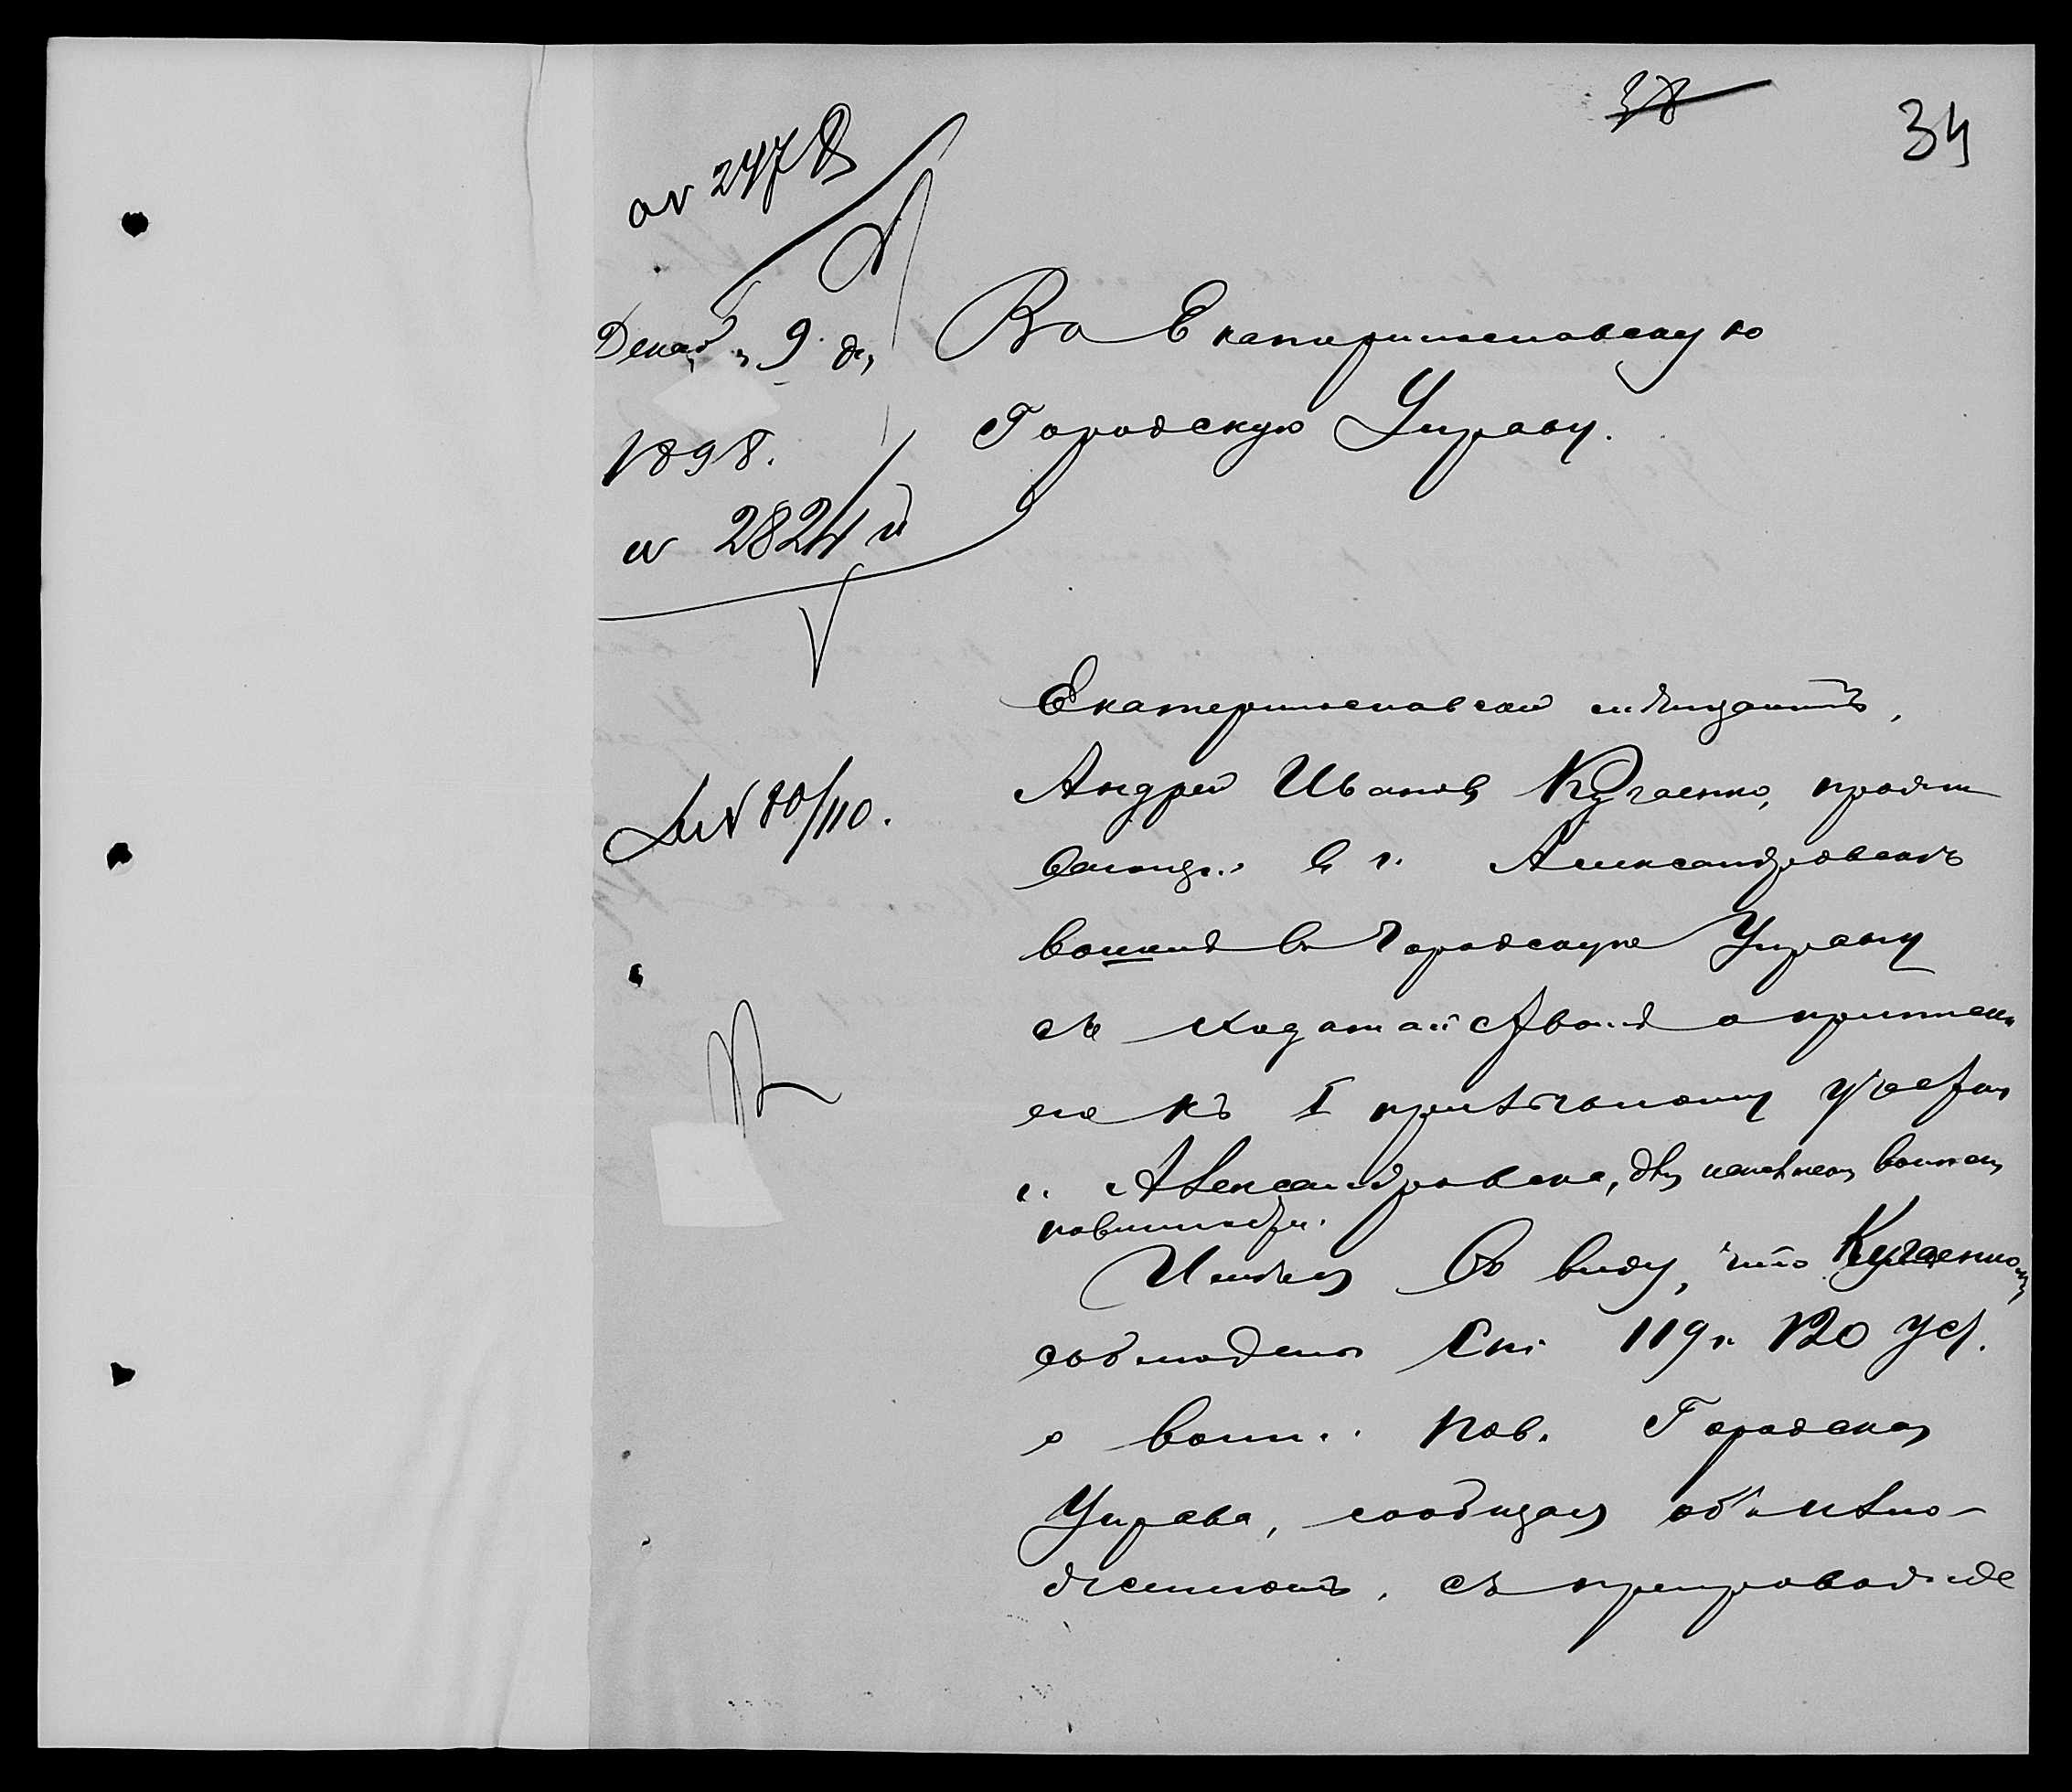 38
34
Декаб. 9 дн,
1898.
2824
Во Екатеринославскую
Городскую Управу.
Екатеринославскій мѣщанинъ,
Андрей Ивановъ Кучаенко, прожи
вающ.. в г. Александровскѣ
вошелъ въ Городскую Управу
съ ходатайствомъ о припискѣ
его къ I призывному участку
г. Александровска, для воинск.
повинности.
Имѣя въ виду, что Кучаенко
соблюдены 119 и 120 уст.
о воин.. пов. Городская
Управа, сообщая объ изло-
женномъ, съ препровожде